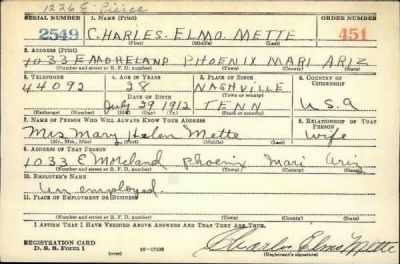 1226 E. Pierce
SERIAL NUMBER 1. NAME (Print) ORDER NUMBER
2549 CHARLES. ELMO. METTE 451
2. ADDRESS (Print)
1033 E MORELAND PHOENIX MARI ARIZ
(Number and street or R. F. D. number) (Town) (County) (State)
3. TELEPHONE 4. AGE IN YEARS 5. PLACE OF BIRTH 6. COUNTRY OF CITIZENSHIP
44092 28 NASHVILLE
DATE OF BIRTH (Town or county)
July 29 1912 TENN U.S.A
(Exchange) (Number) (Mo.) (Day) (Yr.) (State or country)
7. NAME OF PERSON WHO WILL ALWAYS KNOW YOUR ADDRESS 8. RELATIONSHIP OF THAT PERSON
Mrs Mary Helen Mette wife
(Mr., Mrs., Miss) (First) (Middle) (Last)
9. ADDRESS OF THAT PERSON
1033 E Moreland Phoenix Mari Ariz
(Number and street or R. F. D. number) (Town) (County) (State)
10. EMPLOYER'S NAME
Un employed.
11. PLACE OF EMPLOYMENT OR BUSINESS
(Number and street or R. F. D. number) (Town) (County) (State)
I AFFIRM THAT I HAVE VERIFIED ABOVE ANSWERS AND THAT THEY ARE TRUE.
REGISTRATION CARD
D. S. S. Form 1 (over) 16—17105 Charles Elmo Mette
(Registrant's signature)